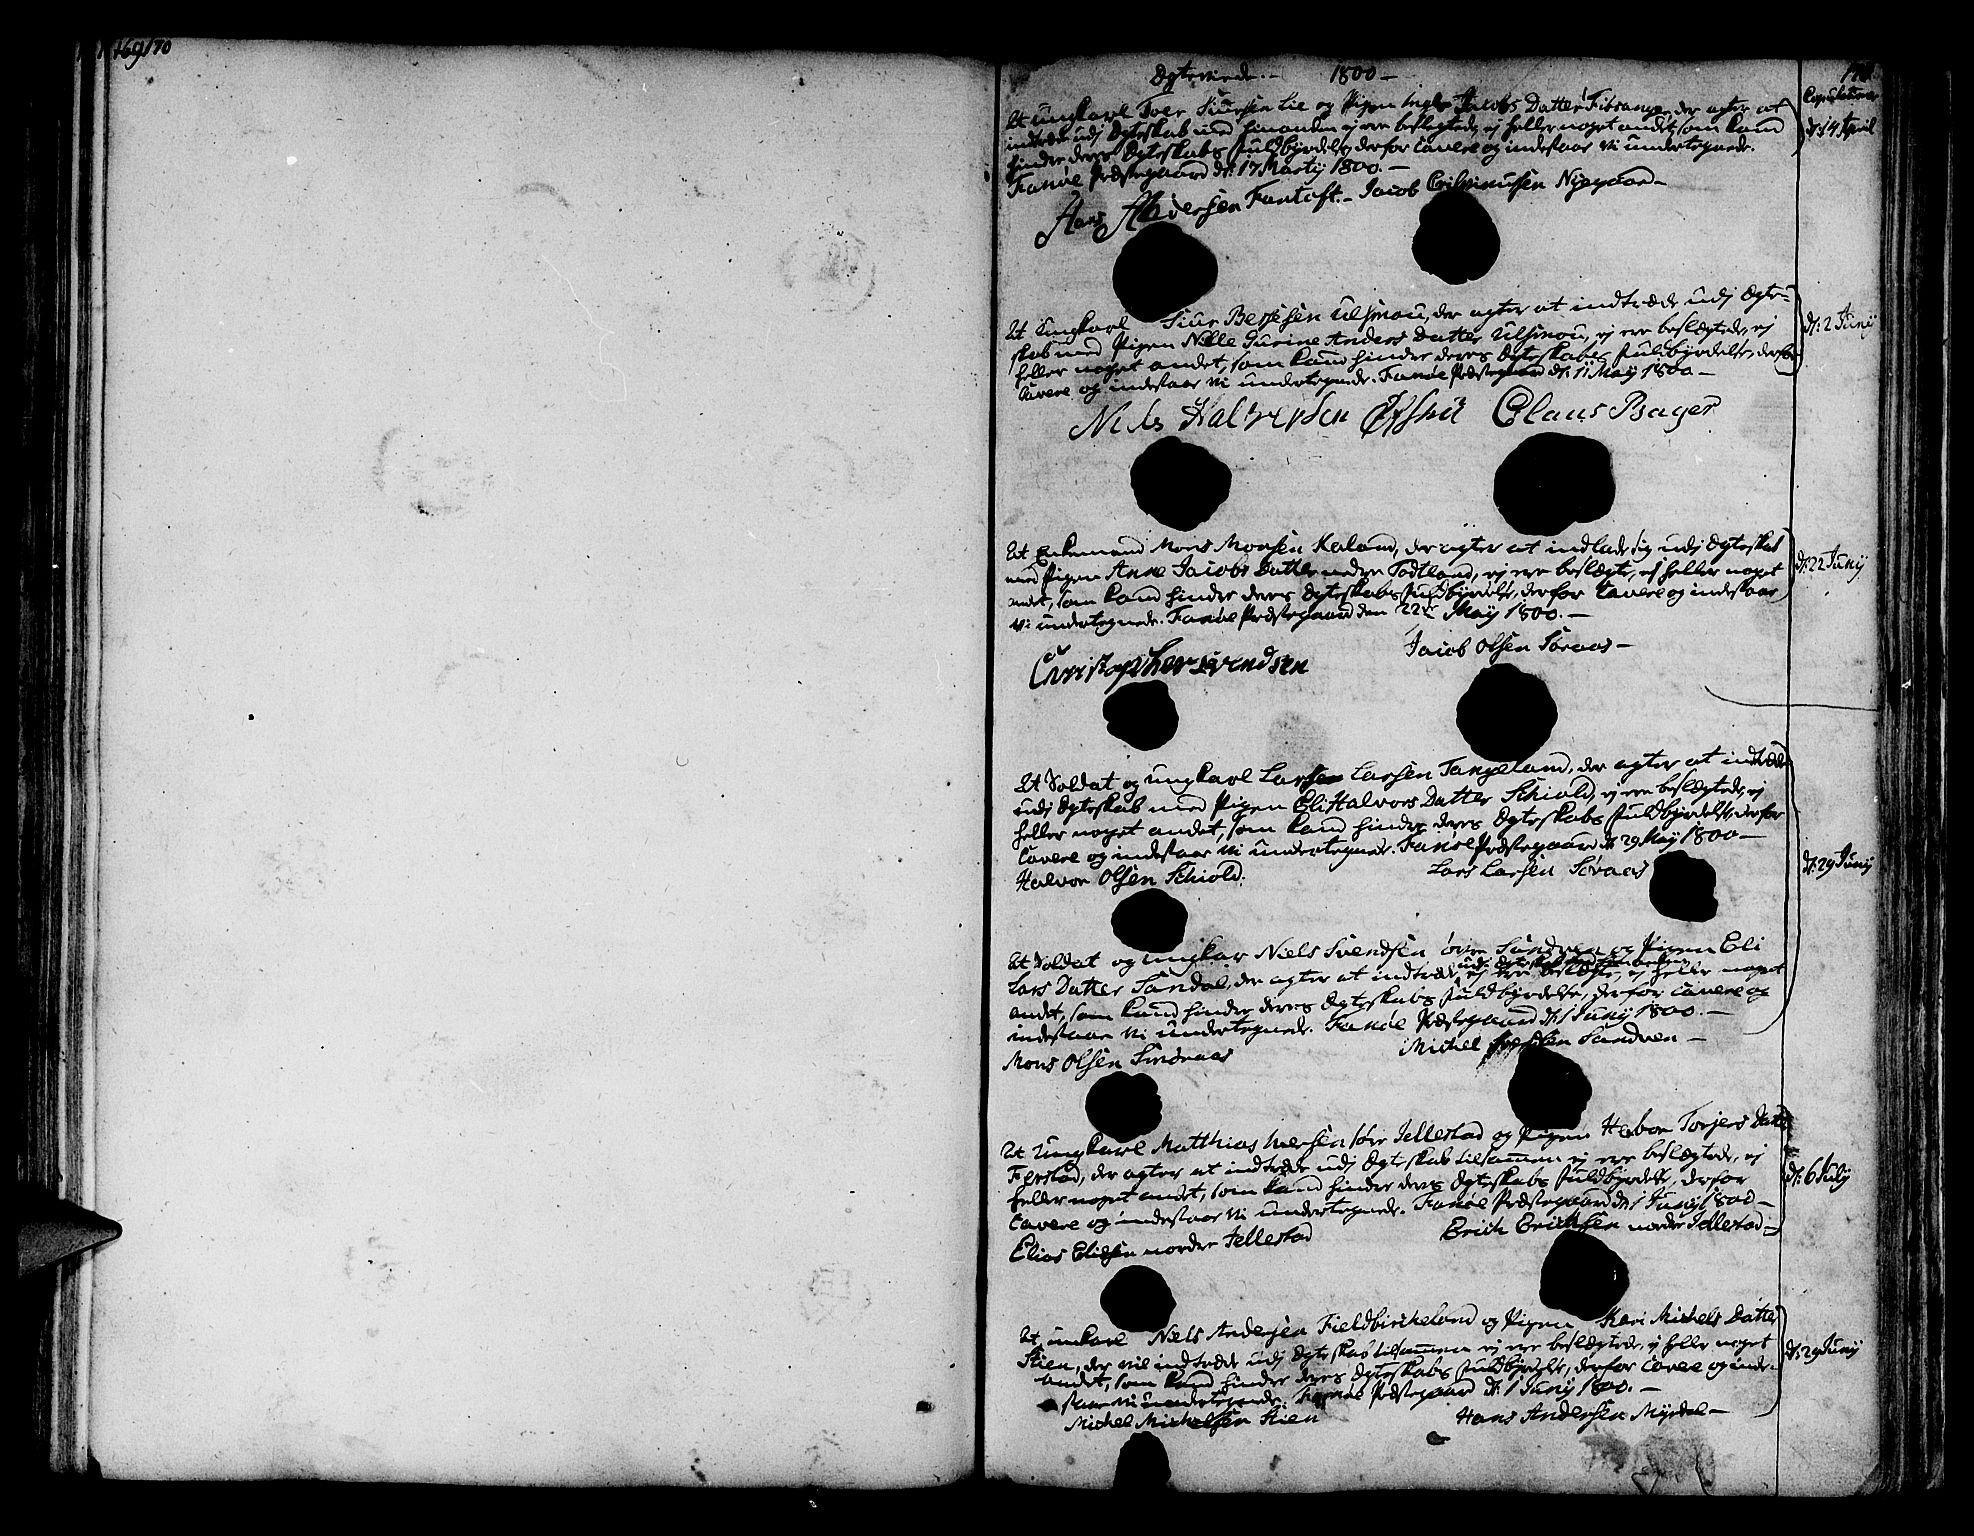 169/70
Egteviede.- 1800-
171.
Copulerede
At ungkarl Toer Siursen Lie og Pigen Inger Jacobs Datter Tibsange, der agter at
indtræde udj Egteskab med hinanden ej ere beslegtede, ej heller noget andet, som kand
hindre deres Egteskabs Fuldbyrdelse, derfor Cavere og indestaar Vi undertegnede.
Fanøe Præstegaard d: 17 Martij 1800.-
d: 14 April
Hans Andersen Fantoft.- Jacob Nygaard-
At Ungkarl Siur Bersesen Ulsmou, der agter at indtræde udj Egte-
skab med Pigen Nille Gurine Anders Datter Ulsmou, ej ere beslægtede, ej
heller noget andet, som kand hindre deres Egteskabs Fuldbyrdelse, derfor
Cavere og indestaar Vi undertegnede. Fanøe Præstegaard d: 11 May 1800-
d: 2 Junij
Niels Halversen Claus Bager
At Enkemand Mons Monsen Kaland, der agter at indlade sig udj Egteskab
med Pigen Anne Jacobs Datter nedre Todtland, ej ere beslægte, ej heller noget
andet, som kand hindre deres Egteskabs Fuldbyrdelse, derfor Cavere og indestaar
Vi undertegnede. Fanøe Præstegaard den 22de Maÿ 1800.-
d: 22 Junÿ
Jacob Olsen Søraas-
Christopher Svendsen
At Soldat og ungkarl Larsen Larsen Tangeland, der agter at indtræde
udj Egteskab med Pigen Eli Halvors Datter Schiold, ej ere beslægtede, ej
heller noget andet, som kand hindre deres Egteskabs Fuldbyrdelse, derfor
Cavere og indestaar Vi undertegnede. Fanøe Præstegaard d: 29 May 1800-
d: 29 Junij
Halvor Olsen Schiold. Lars Larsen Søraas
At Soldat og ungkar Niels Svendsen øvre Sundven og Pigen Eli
Lars Datter Sandal, der agter at indtræde udj Egteskab med hinanden, ej ere beslægte, ej heller noget
andet, som kand hindre deres Egteskabs Fuldbyrdelse, derfor Cavere og
indestaar Vi undertegnede. Fanøe Præstegaard d: 1 Junij 1800.-
Mons Olsen Smøraas Michel Sandven-
At Ungkarl Matthias Iversen søre Jellestad og Pigen Habor Torjers Datter
Ferstad, der agter at indtræde udj Egteskab tilsammen ej ere beslægtede, ej
heller noget andet, som kand hindre deres Egteskabs Fuldbyrdelse, derfor
Cavere og indestaar Vi undertegnede. Fanøe Præstegaard d: 1 Junij 1800-
d: 6 July
Elias Eliesen nordre Jellestad Erich Erichsen nordre Jellestad-
At unkarl Niels Andersen Fieldbirkeland og Pigen Kari Michels Datter
Stien, der vil indtræde udj Egteskab tilsammen ej ere beslægtede, ej heller noget
andet, som kand hindre deres Egteskabs Fuldbyrdelse, derfor Cavere og inde-
staar Vi undertegnede. Fanøe Præstegaard d: 1 Junij 1800.-
d: 29 Junij
Michel Michelsen Stien Hans Andersen Myrdal-